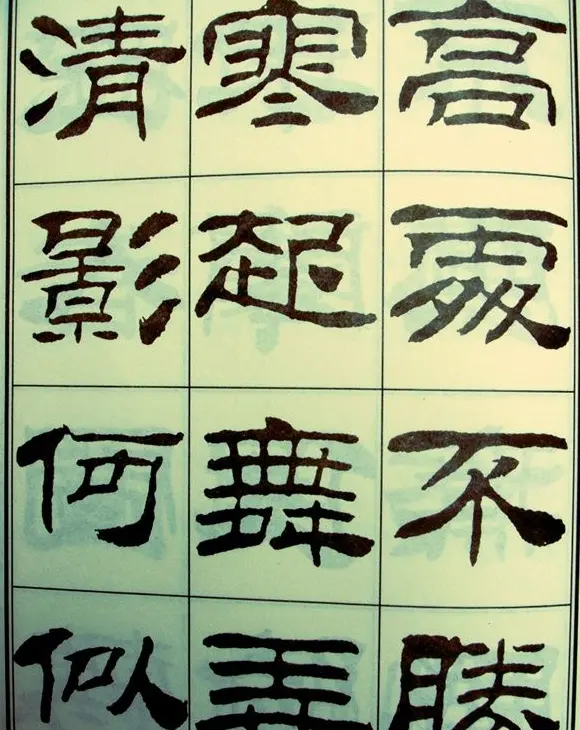 高處不勝
寒起舞弄
清影何似